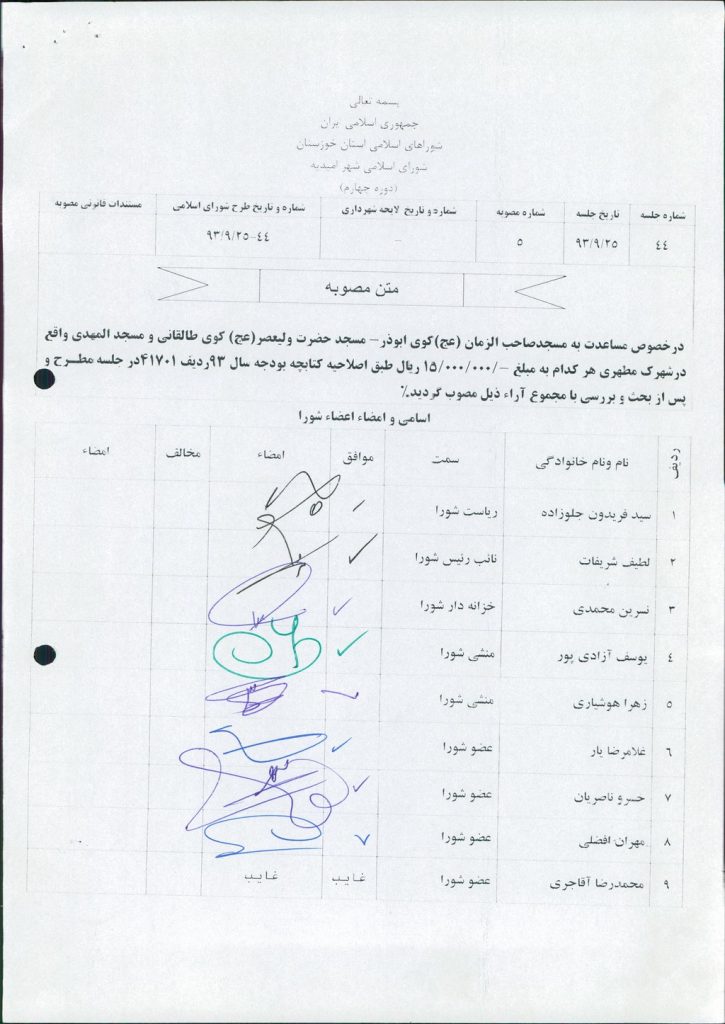 بسمه تعالی
جمهوری اسلامی یران
شوراهای اسلامی استان خوزستان
شورای اسلامی شهر امیدیه
(دوره چهارم)
شماره جلسه تاریخ جلسه شماره مصوبه شماره و تاریخ لایحه شهرداری شماره و تاریخ طرح شورای اسلامی مستندات قانونی مصوبه
۴۴ ۹۳/۹/۲۵ ۵ – ۴۴-۹۳/۹/۲۵
متن مصوبه
درخصوص مساعدت به مسجدصاحب الزمان (عج)کوی ابوذر– مسجد حضرت ولیعصر(عج) کوی طالقانی و مسجد المهدی واقع
درشهرک مطهری هر کدام به مبلغ -/۱۵/۰۰۰/۰۰۰ ریال طبق اصلاحیه کتابچه بودجه سال ۹۳ردیف ۴۱۷۰۱در جلسه مطرح و
پس از بحث و بررسی با مجموع آراء ذیل مصوب گردید./
اسامی و امضاء اعضاء شورا
ردیف نام ونام خانوادگی سمت موافق امضاء مخالف امضاء
۱ سید فریدون جلوزاده ریاست شورا
۲ لطیف شریفات نائب رئیس شورا
۳ نسرین محمدی خزانه دار شورا
۴ یوسف آزادی پور منشی شورا
۵ زهرا هوشیاری منشی شورا
۶ غلامرضا یار عضو شورا
۷ خسرو ناصریان عضو شورا
۸ مهران افضلی عضو شورا
۹ محمدرضا آقاجری عضو شورا غایب غایب